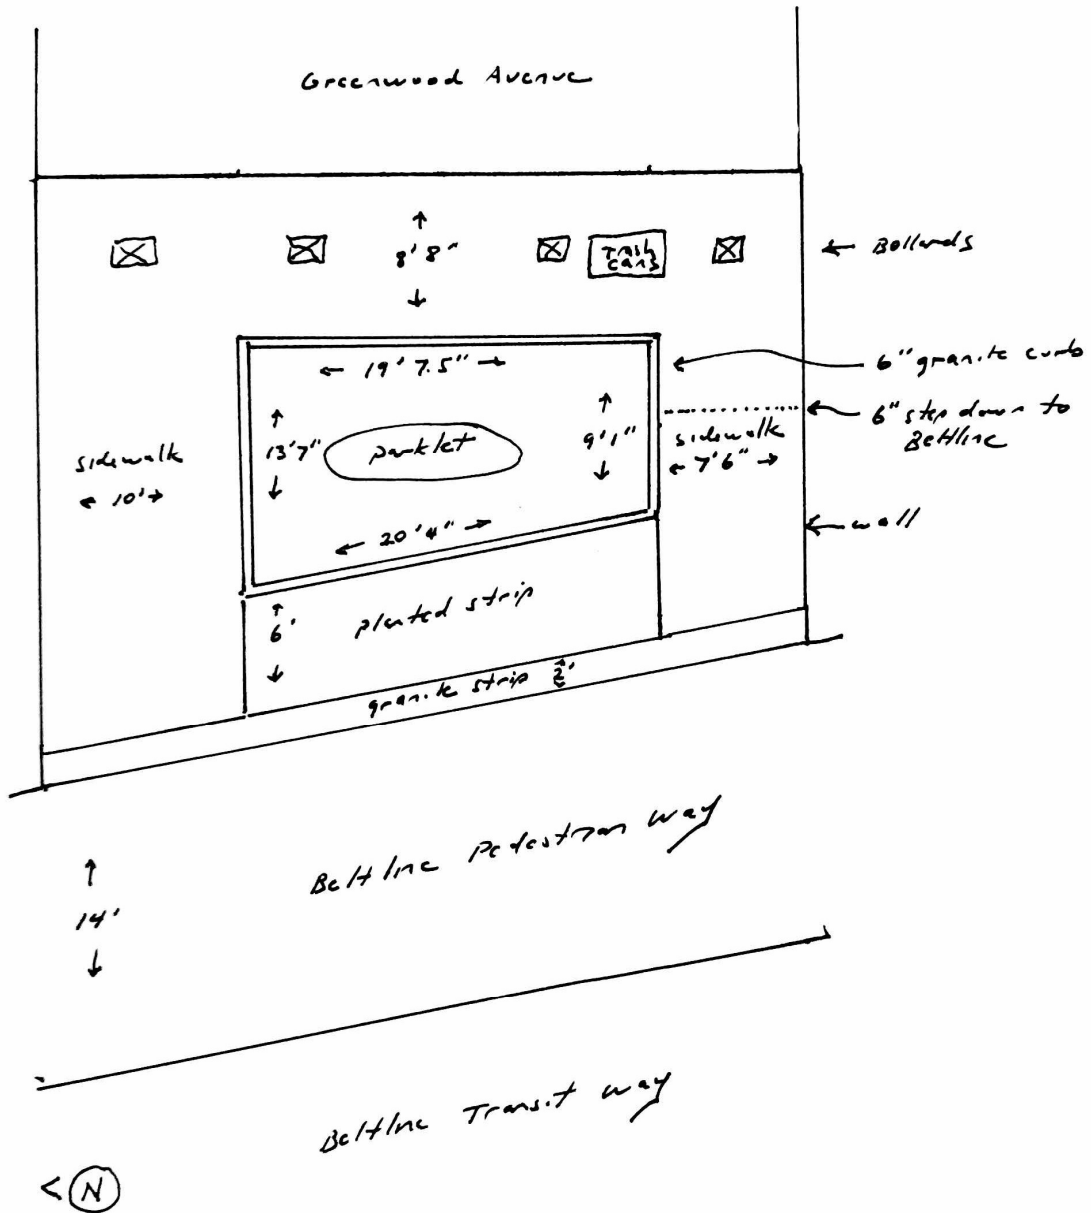 Greenwood Avenue
8' 8"
Trash
cans
← Bollards
19' 7.5"
6" granite curb
6" step down to
Beltline
13' 7"
parklet
9' 1"
sidewalk
7' 6"
sidewalk
10'
20' 4"
wall
6'
planted strip
granite strip 2'
Beltline Pedestrian Way
14'
Beltline Transit Way
< N